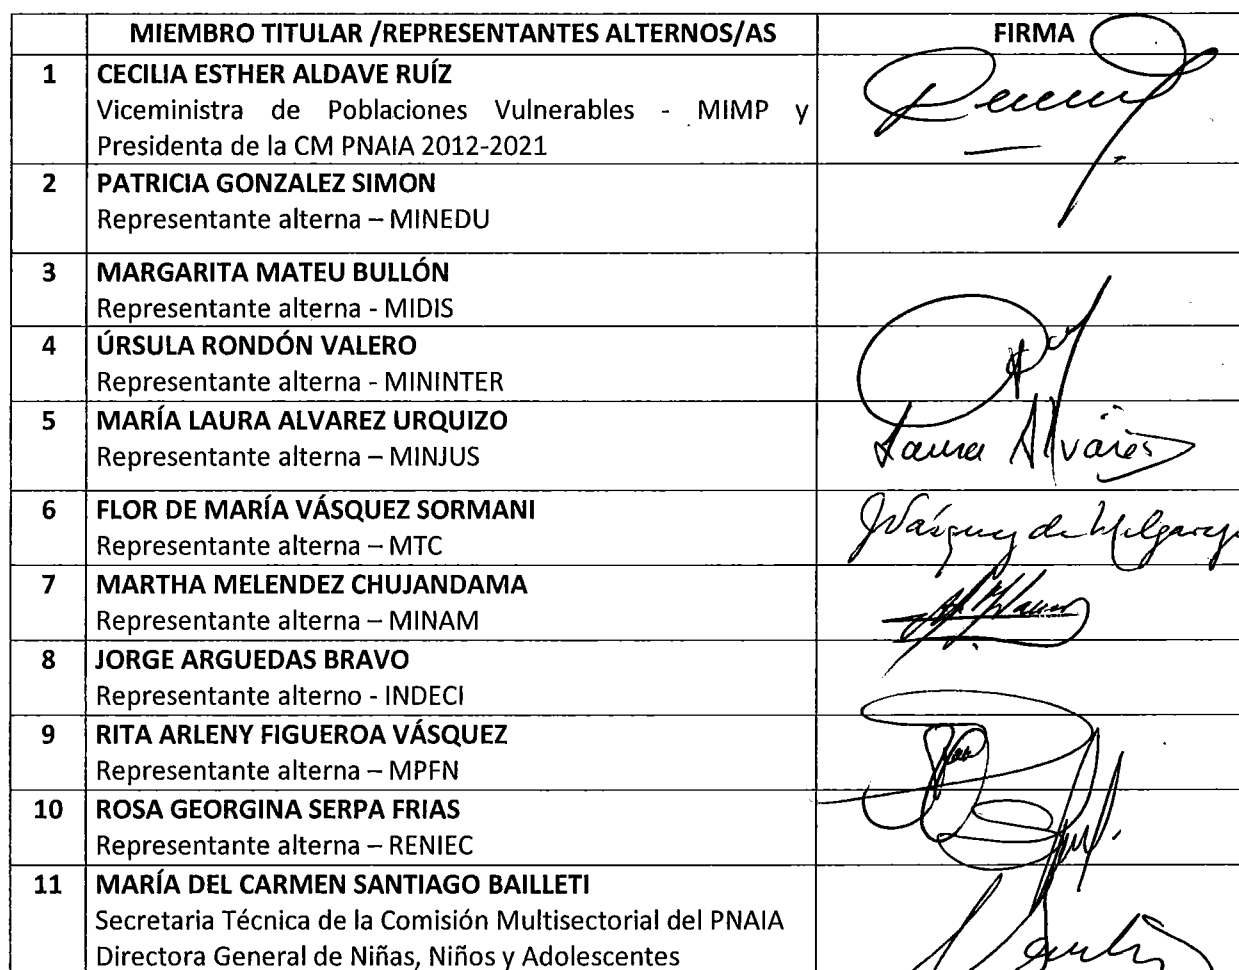 MIEMBRO TITULAR /REPRESENTANTES ALTERNOS/AS FIRMA
1 CECILIA ESTHER ALDAVE RUÍZ
Viceministra de Poblaciones Vulnerables - MIMP y
Presidenta de la CM PNAIA 2012-2021
2 PATRICIA GONZALEZ SIMON
Representante alterna – MINEDU
3 MARGARITA MATEU BULLÓN
Representante alterna - MIDIS
4 ÚRSULA RONDÓN VALERO
Representante alterna - MININTER
5 MARÍA LAURA ALVAREZ URQUIZO
Representante alterna – MINJUS
Laura Alvarez
6 FLOR DE MARÍA VÁSQUEZ SORMANI
Representante alterna – MTC
7 MARTHA MELENDEZ CHUJANDAMA
Representante alterna – MINAM
8 JORGE ARGUEDAS BRAVO
Representante alterno - INDECI
9 RITA ARLENY FIGUEROA VÁSQUEZ
Representante alterna – MPFN
10 ROSA GEORGINA SERPA FRIAS
Representante alterna – RENIEC
11 MARÍA DEL CARMEN SANTIAGO BAILLETI
Secretaria Técnica de la Comisión Multisectorial del PNAIA
Directora General de Niñas, Niños y Adolescentes